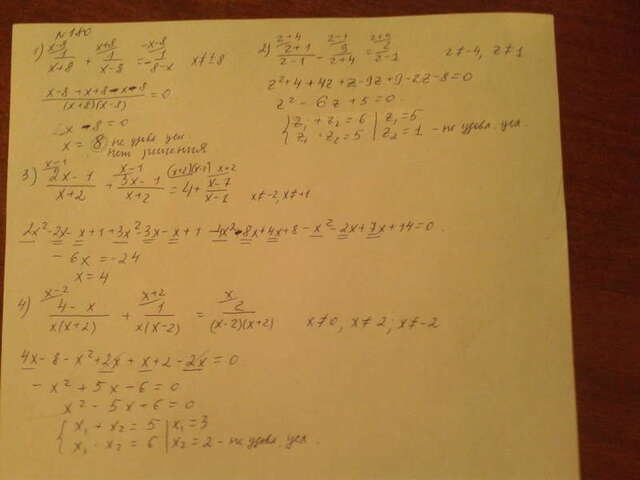 №180
1) x-8/ 1/(x+8) + x+8/ 1/(x-8) = -x-8/ 1/(8-x) x≠±8
(x-8+x+8-x-8)/((x+8)(x-8)) = 0
x-8=0
x = 8 не удовл. усл.
нет решения
2) z+4/ (z+1)/(z-1) - z-1/ 9/(z+4) = z+4/ 2/(z-1) z≠-4, z≠1
z²+4+4z+z-9z+9-2z-8=0
z²-6z+5=0
{z₁+z₂=6 | z₁=5
{z₁·z₂=5 | z₂=1 - не удовл. усл.
3) x-1/ (2x-1)/(x+2) + x-1/ (3x-1)/(x+2) = (x+2)(x-1)/ 4 + x+2/ (x-7)/(x-1) x≠-2, x≠+1
2x²-2x-x+1+3x²-3x-x+1-4x²-8x+4x+8-x²-2x+7x+14=0
-6x=-24
x=4
4) x-2/ (4-x)/(x(x+2)) + x+2/ 1/(x(x-2)) = x/ 2/((x-2)(x+2)) x≠0, x≠2; x≠-2
4x-8-x²+2x+x+2-2x=0
-x²+5x-6=0
x²-5x+6=0
{x₁+x₂=5 | x₁=3
{x₁·x₂=6 | x₂=2 - не удовл. усл.